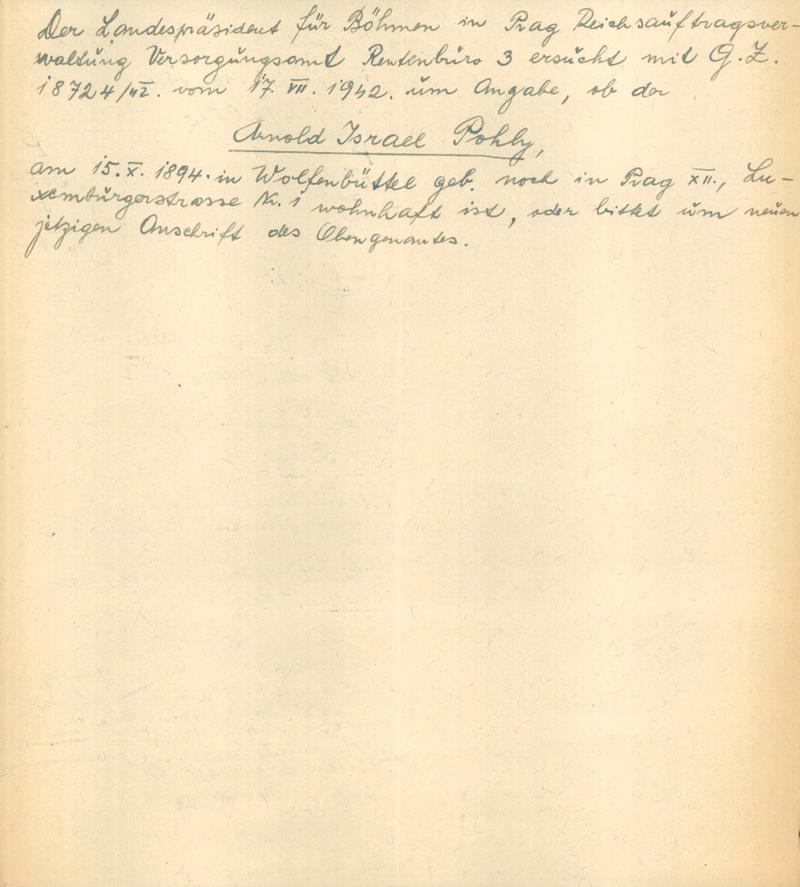 Der Landespräsident für Böhmen in Prag Reichsauftragsver-
waltung Versorgungsamt Rentenbüro 3 ersucht mit G.Z.
18724/VI. vom 17. VII. 1942. um Angabe, ob der
Arnold Israel Pohly,
am 15. X. 1894. in Wolfenbüttel geb. noch in Prag XII., Lu-
xemburgerstrasse N. 1 wohnhaft ist, oder bittet um neuen
jetzigen Anschrift des Obengenantes.